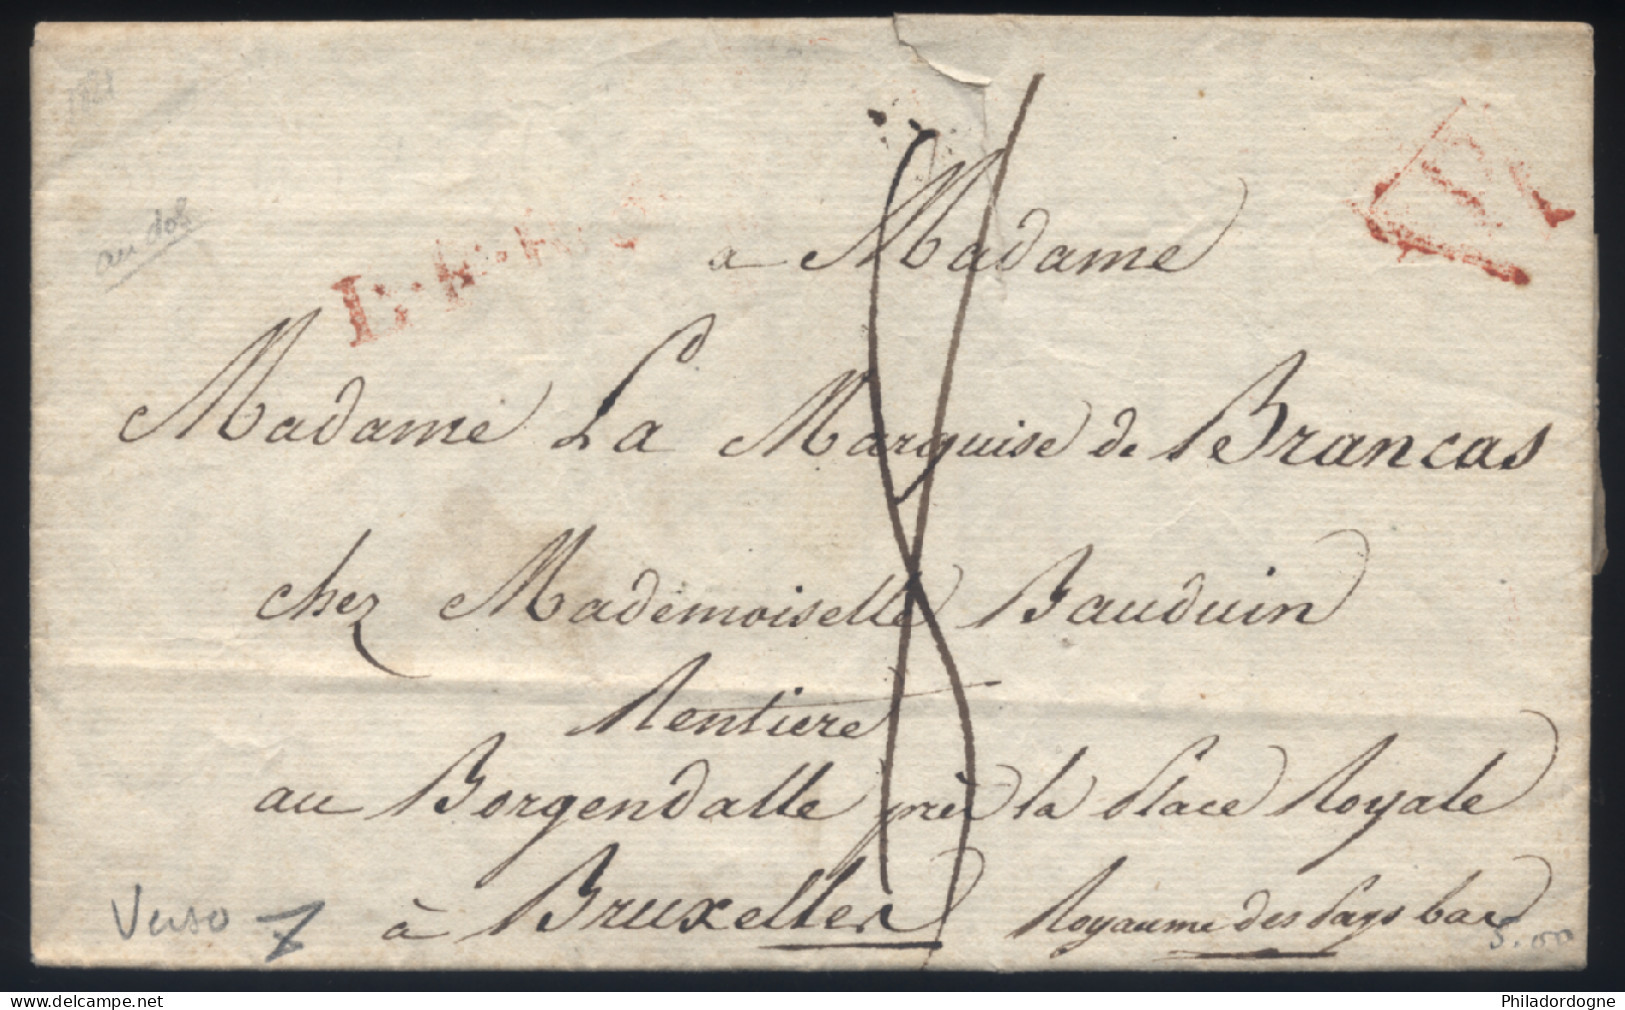 au dos
a Madame
Madame La Marquise de Brancas
chez Mademoiselle Bauduin
Rentiere
au Borgendalle près la Place Royale
à Bruxelles Royaume des Pays bas
Verso
5.00
delcampe.net
Philadordogne